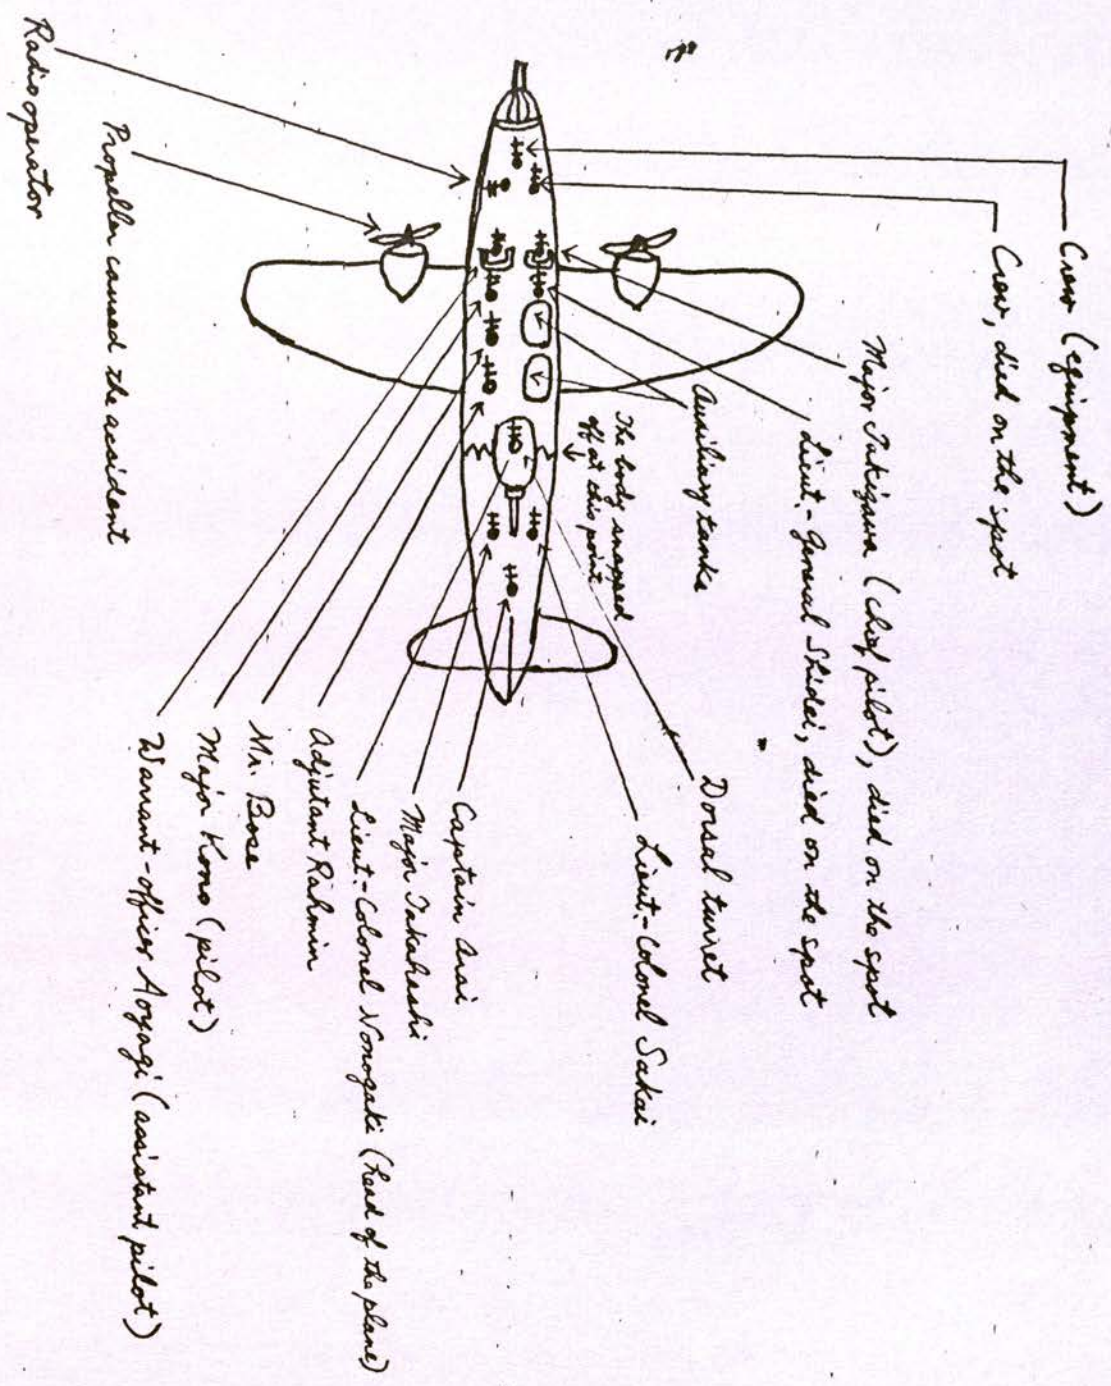 Crew (equipment)
Crew, died on the spot
Major Takizawa (chief pilot), died on the spot
Lieut.-General Shidei, died on the spot
Auxiliary tanks
The body snapped
off at this point
Dorsal turret
Lieut.-Colonel Sakai
Captain Arai
Major Takahashi
Lieut.-Colonel Nonogaki (head of the plane)
Adjutant Rahmin
Mr. Bose
Major Kono (pilot)
Warrant-officer Aoyagi (assistant pilot)
Propeller caused the accident
Radio operator